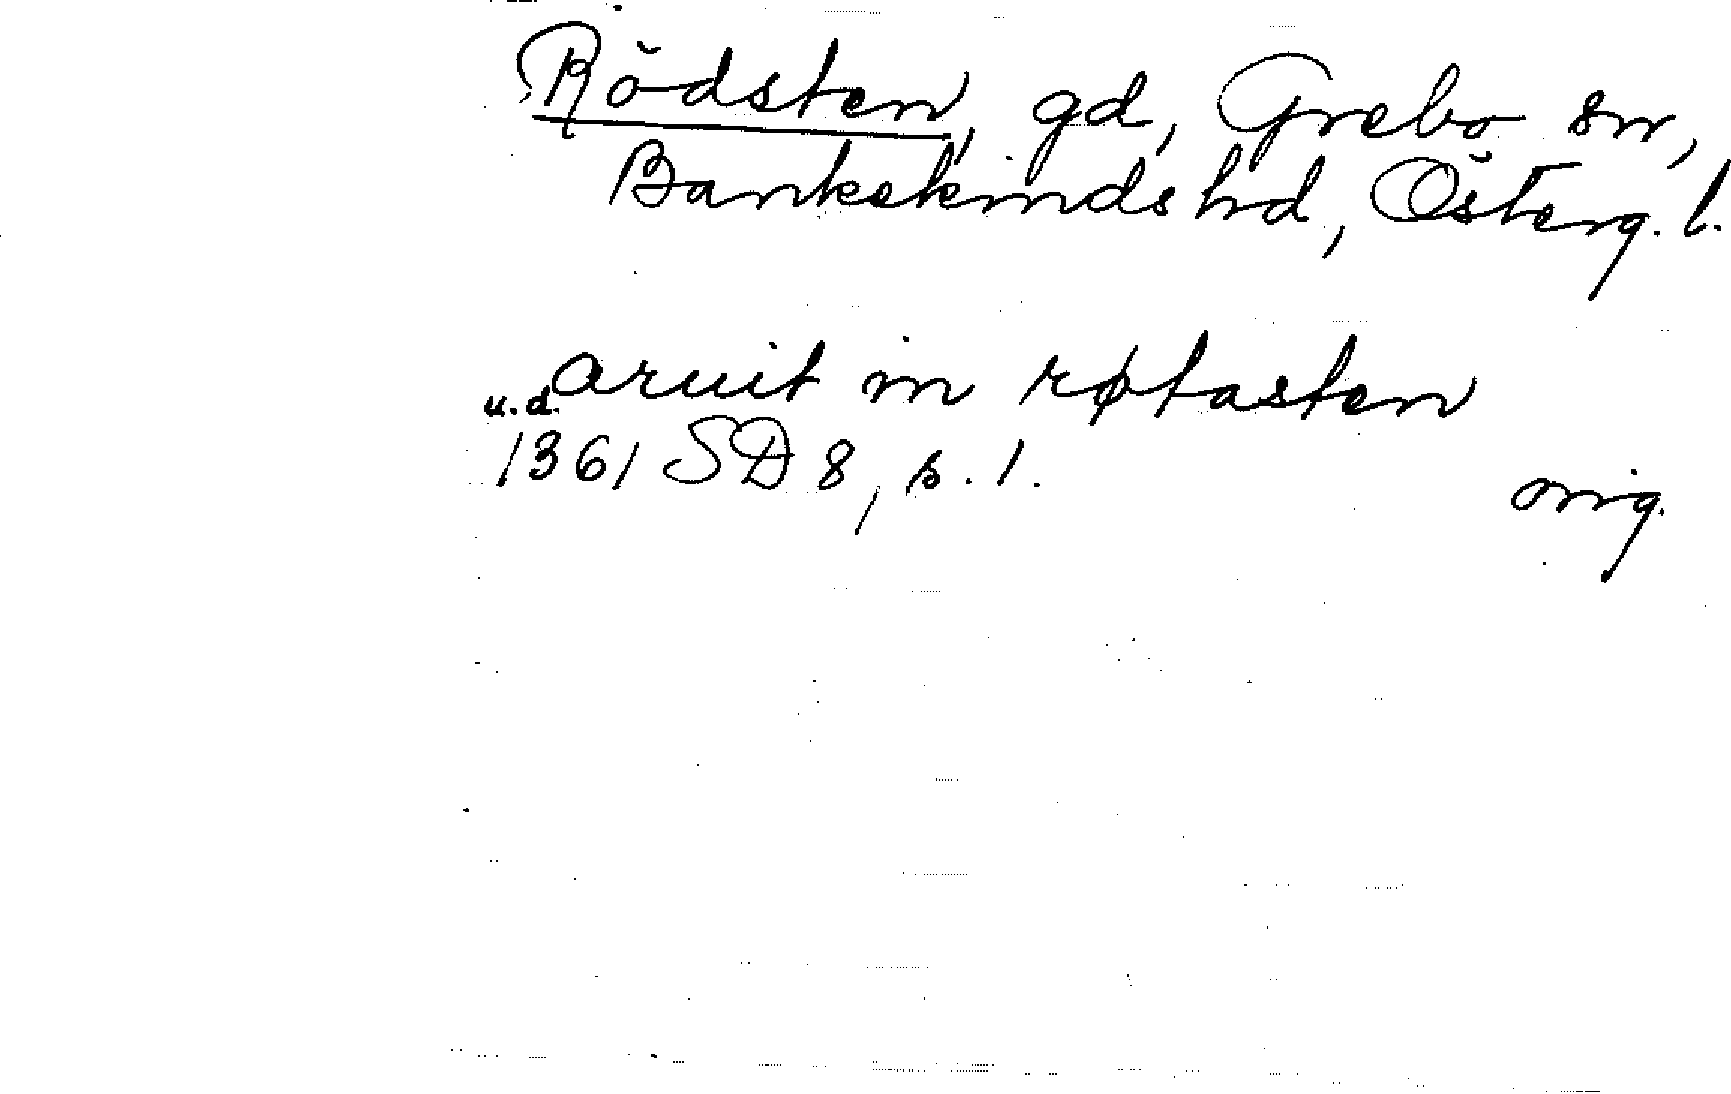 Rödsten, gd, Grebo sn,
Bankekinds hd, Österg. l.
aruit in røtasten
u.d.
1361 SD 8, s. 1.
orig.